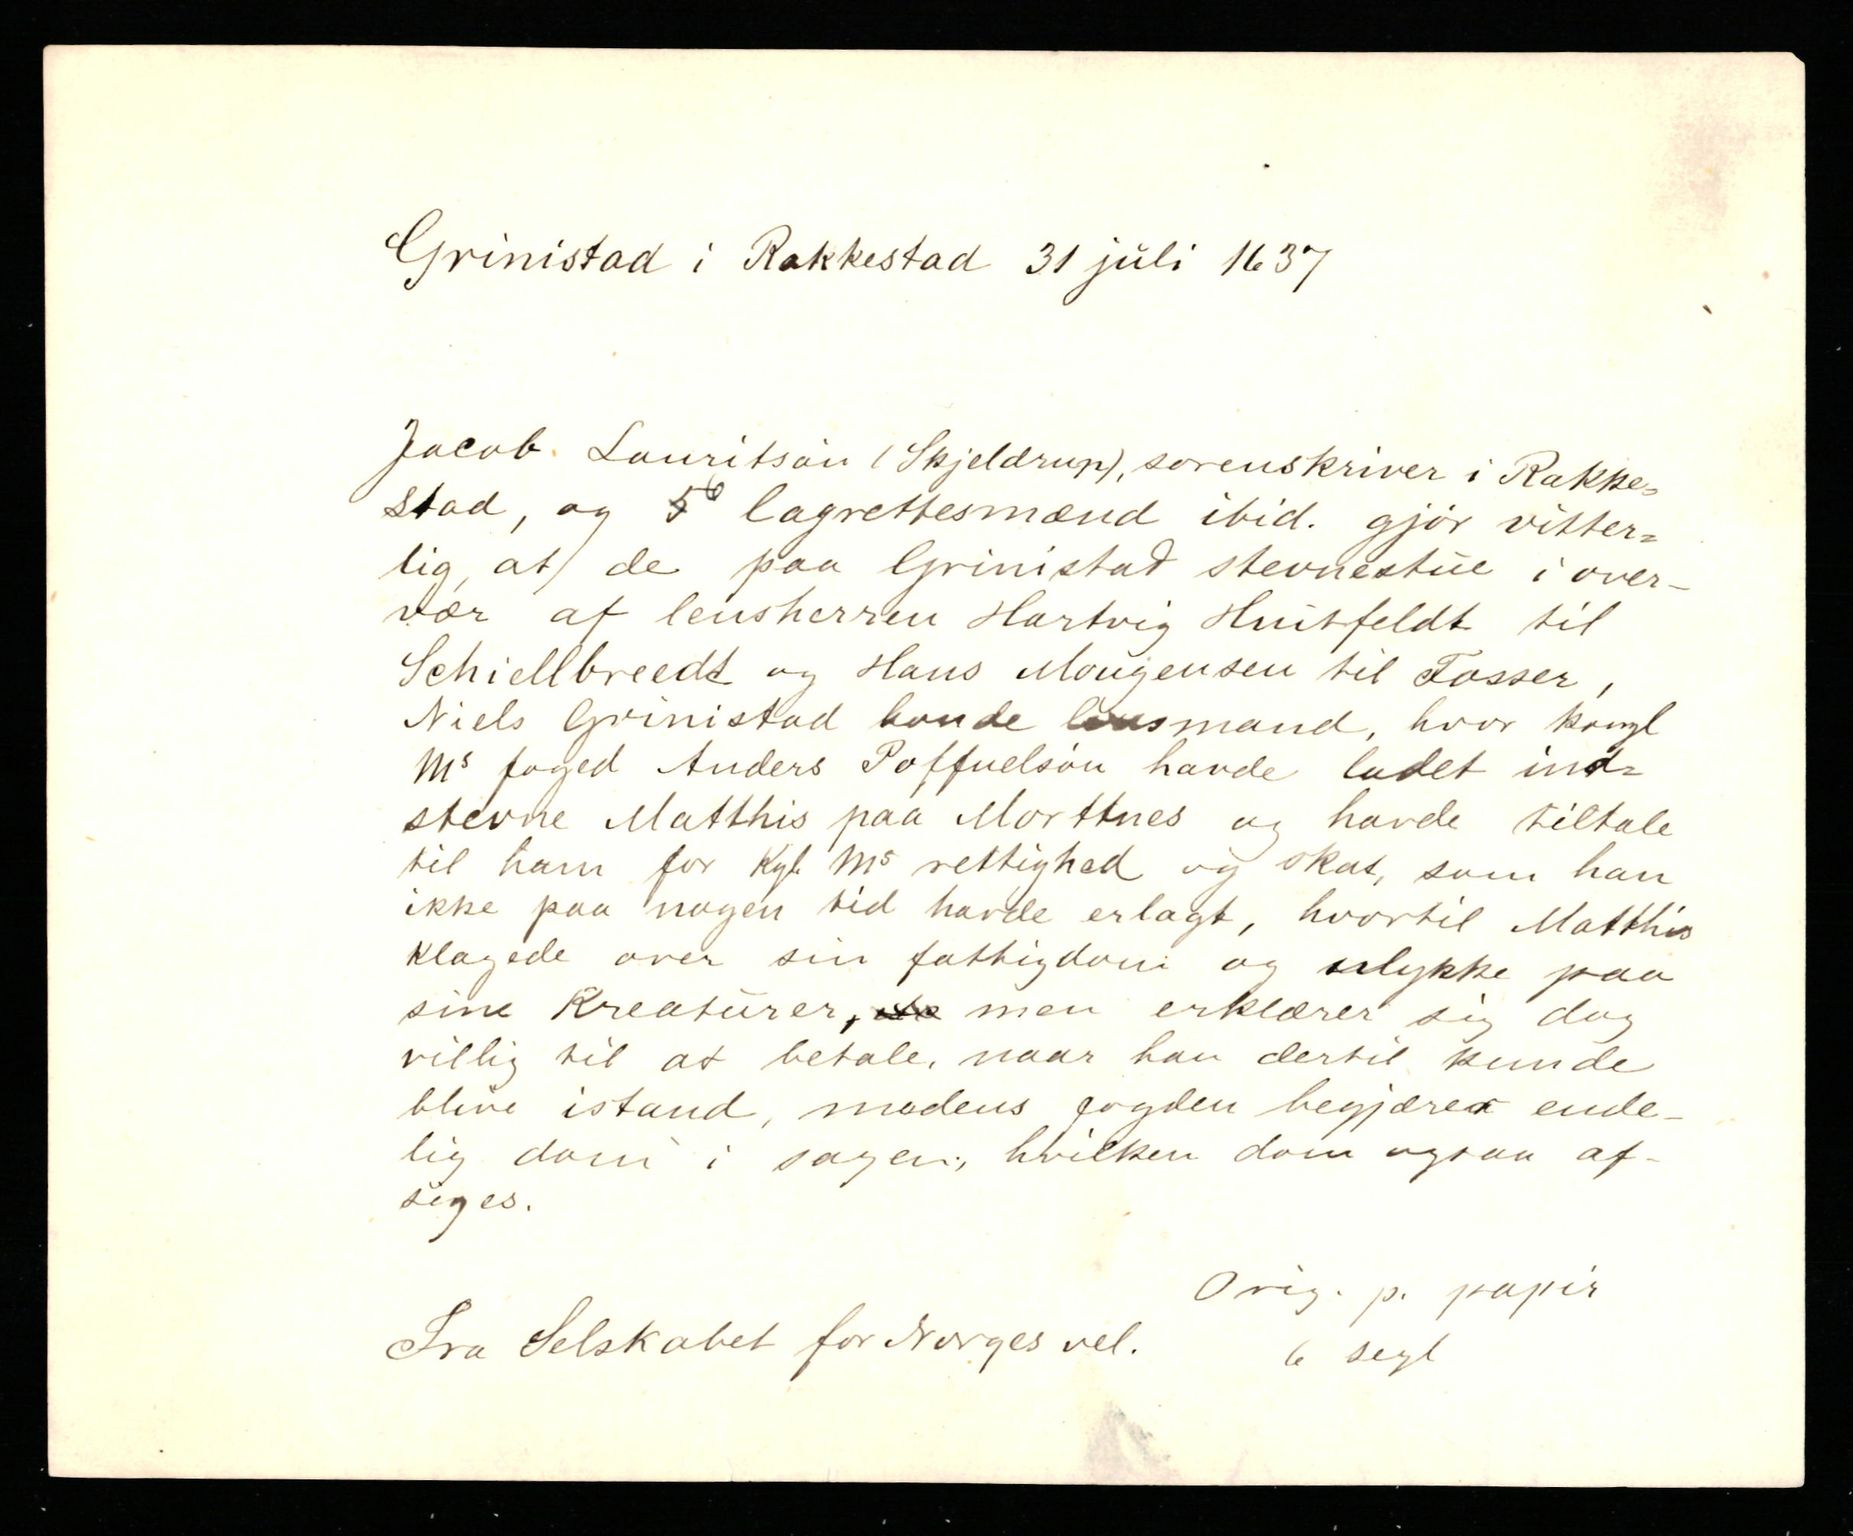 Grinistad i Rakkestad 31 juli 1637
Jacob Lauritsøn (Skjeldrup), sorenskriver i Rakke=
stad, og 5 lagrettesmænd ibid. gjør vitter=
lig, at de paa Grinistad stevnestue i over-
vær af lensherren Hartvig Huitfeldt til
Schiellbreedt og Hans Mougensen til Fosser,
Niels Grinistad bonde lensmand, hvor kongl
Ms foged Anders Poffuelsøn havde ladet ind=
stevne Matthis paa Morttnes og havde tiltale
til ham for Kgl. Ms rettighed og skat, som han
ikke paa nogen tid havde erlagt, hvortil Matthis
klagede over sin fattigdom og ulykke paa
sine Kreaturer, men erklærer sig dog
villig til at betale, naar han dertil kunde
blive istand, medens fogden begjærer ende-
lig dom i sagen, hvilken dom ogsaa af-
siges.
Orig. p. papir
Fra Selskabet for Norges vel.
6 segl